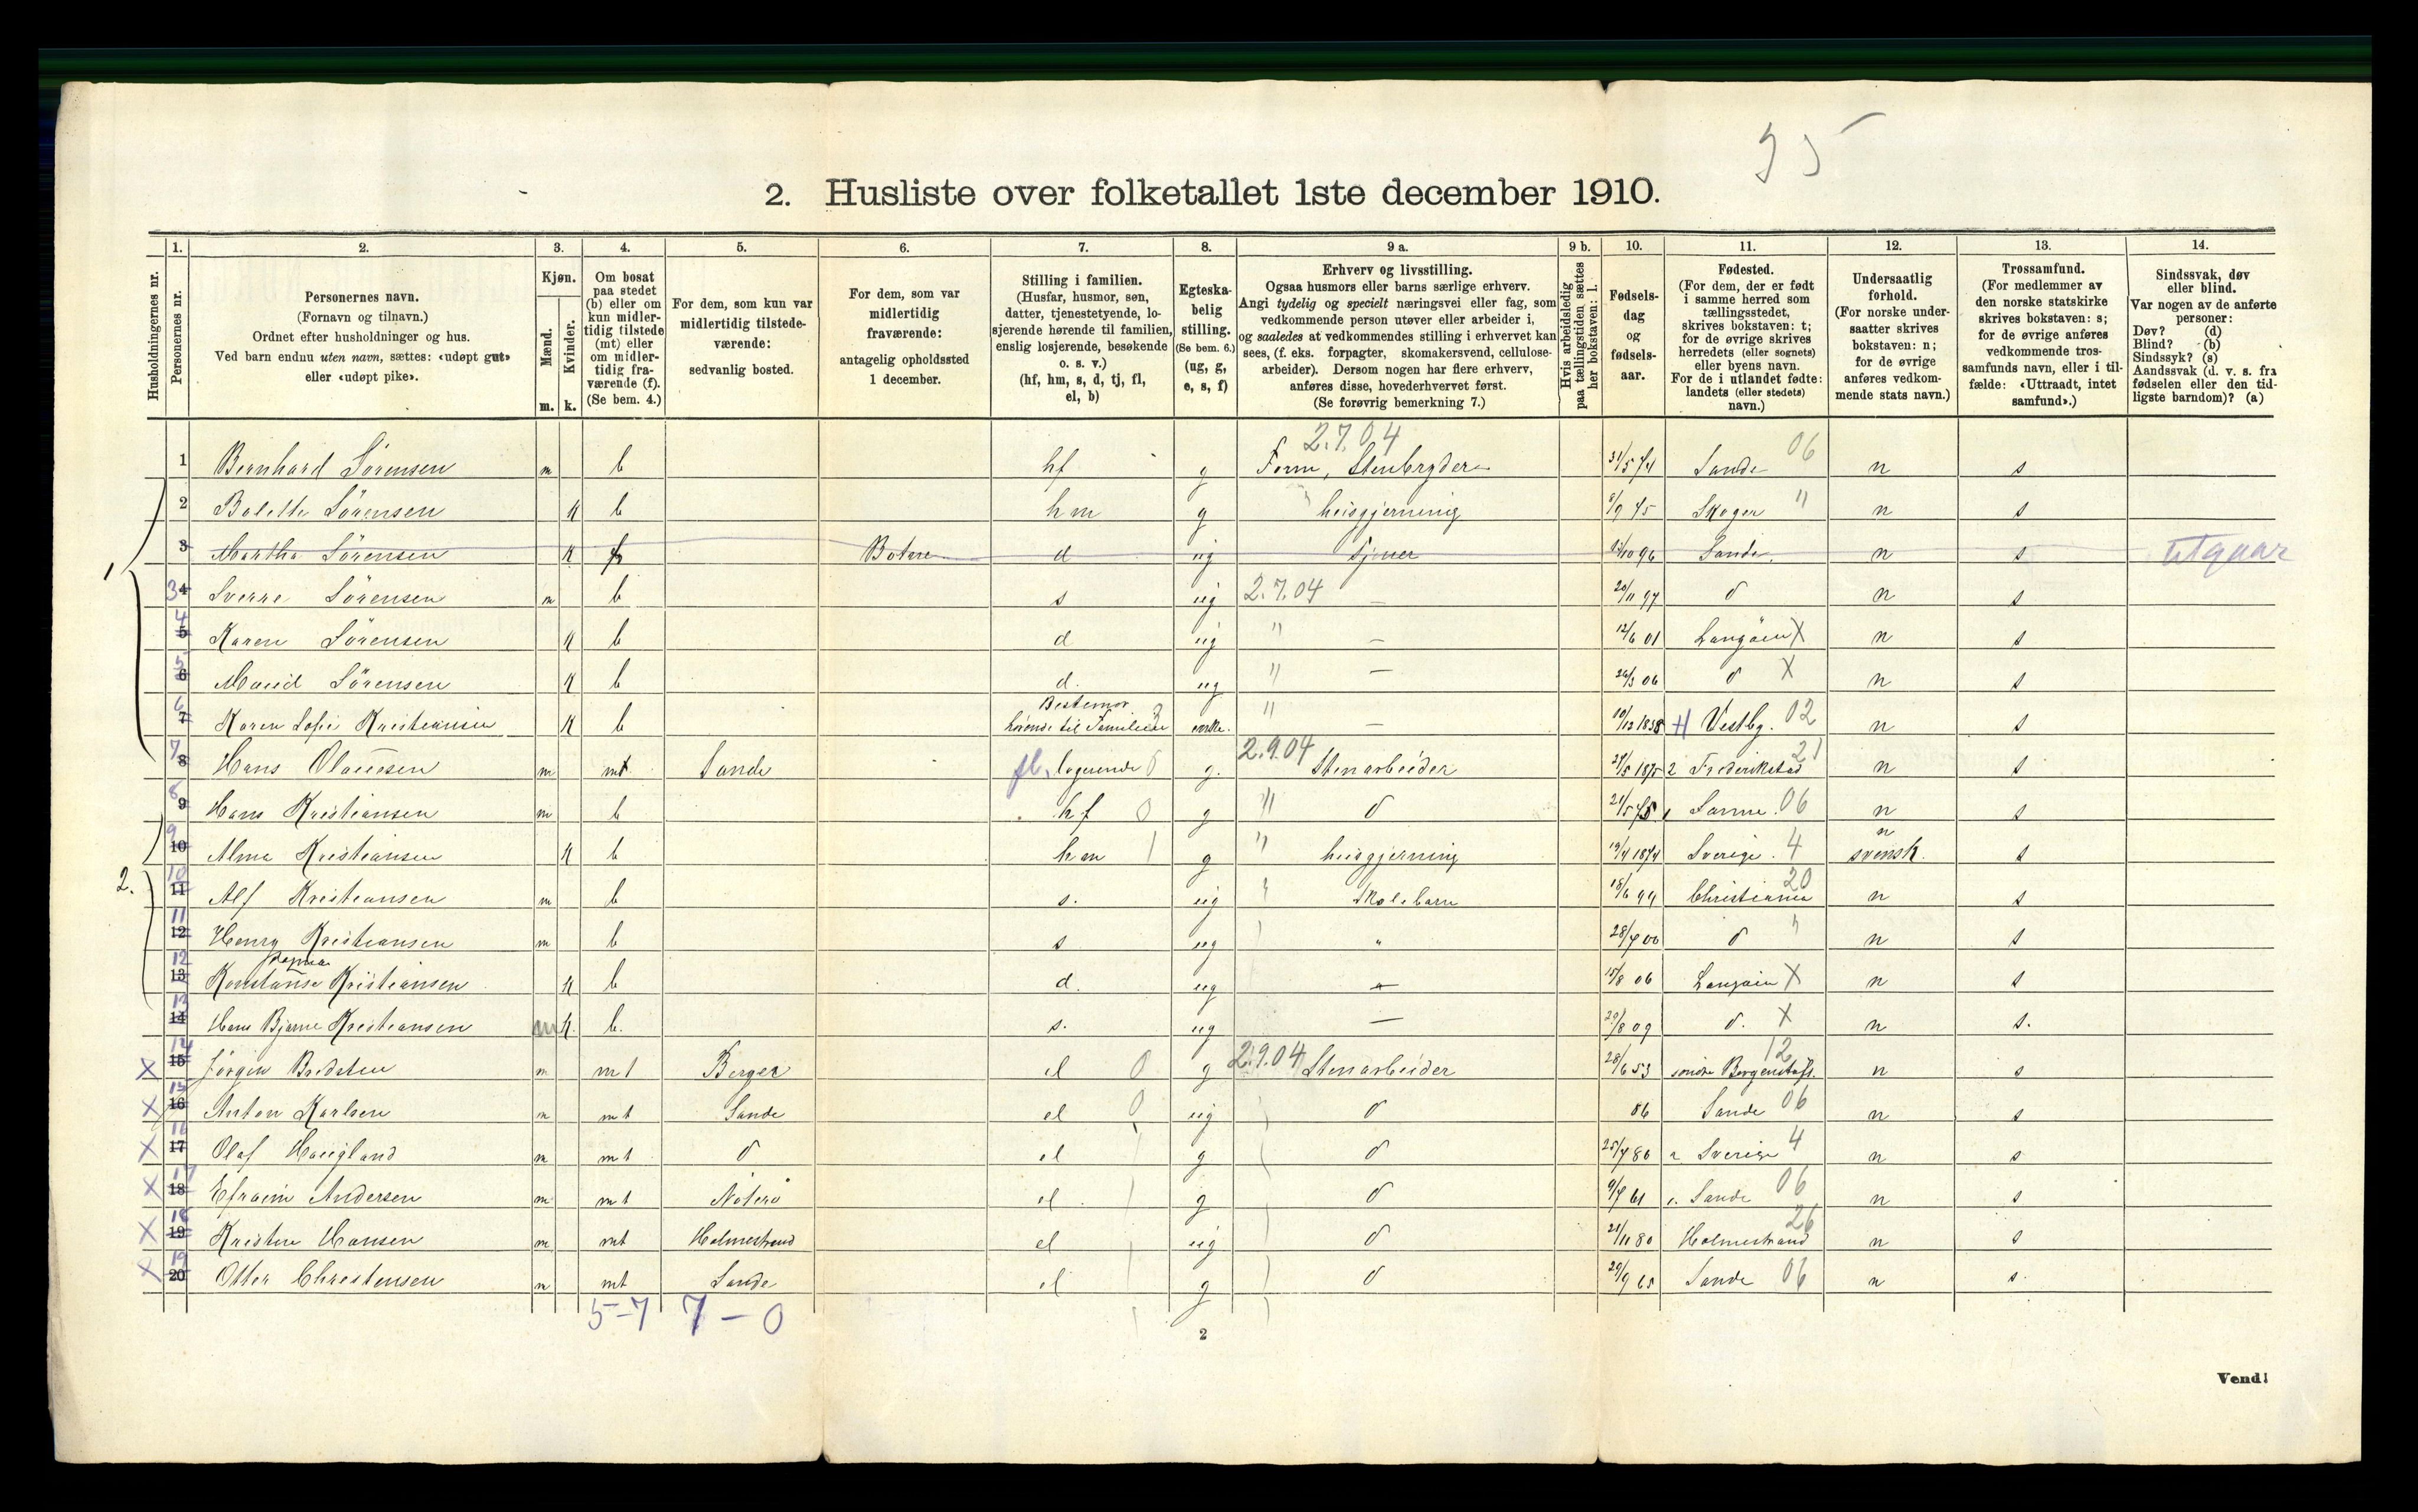 95
2. Husliste over folketallet 1ste december 1910.
Husholdningernes nr.
1.
Personernes nr.
2.
Personernes navn.
(Fornavn og tilnavn.)
Ordnet efter husholdninger og hus.
Ved barn endnu uten navn, sættes: «udøpt gut»
eller «udøpt pike».
3.
Kjøn.
Mænd.
Kvinder.
m. k.
4.
Om bosat
paa stedet
(b) eller om
kun midler-
tidig tilstede
(mt) eller
om midler-
tidig fra-
værende (f).
(Se bem. 4.)
5.
For dem, som kun var
midlertidig tilstede-
værende:
sedvanlig bosted.
6.
For dem, som var
midlertidig
fraværende:
antagelig opholdssted
1 december.
7.
Stilling i familien.
(Husfar, husmor, søn,
datter, tjenestetyende, lo-
sjerende hørende til familien,
enslig losjerende, besøkende
o. s. v.)
(hf, hm, s, d, tj, fl,
el, b)
8.
Egteska-
belig
stilling.
(Se bem. 6.)
(ug, g,
e, s, f)
9 a.
Erhverv og livsstilling.
Ogsaa husmors eller barns særlige erhverv.
Angi tydelig og specielt næringsvei eller fag, som
vedkommende person utøver eller arbeider i,
og saaledes at vedkommendes stilling i erhvervet kan
sees, (f. eks. forpagter, skomakersvend, cellulose-
arbeider). Dersom nogen har flere erhverv,
anføres disse, hovederhvervet først.
(Se forøvrig bemerkning 7.)
9 b.
Hvis arbeidsledig
paa tællingstiden sættes
her bokstaven: l.
10.
Fødsels-
dag
og
fødsels-
aar.
11.
Fødested.
(For dem, der er født
i samme herred som
tællingsstedet,
skrives bokstaven: t;
for de øvrige skrives
herredets (eller sognets)
eller byens navn.
For de i utlandet fødte:
landets (eller stedets)
navn.)
12.
Undersaatlig
forhold.
(For norske under-
saatter skrives
bokstaven: n;
for de øvrige
anføres vedkom-
mende stats navn.)
13.
Trossamfund.
(For medlemmer av
den norske statskirke
skrives bokstaven: s;
for de øvrige anføres
vedkommende tros-
samfunds navn, eller i til-
fælde: «Uttraadt, intet
samfund».)
14.
Sindssvak, døv
eller blind.
Var nogen av de anførte
personer:
Døv? (d)
Blind? (b)
Sindssyk? (s)
Aandssvak (d. v. s. fra
fødselen eller den tid-
ligste barndom)? (a)
1 Bernhard Sörensen m b hf g 2.7.04 Stenbryder 31/5 74 Sande 06 n s
2 Bolette Sörensen k b hm g " heisgjerning 8/9 75 Skoger " n s
3 Martha Sörensen k f Botne d ug Tjener 96 Sande. n s utgaar
3 4 Sverre Sörensen m b s ug 2.7.04 — 20/11 97 d n s
4 5 Karen Sörensen k b d ug " — 12/6 01 Langöen X n s
5 6 Maud Sörensen k b d. ug " — 26/3 06 d X n s
6 7 Karen Sofie Kristiansen k b Bestemor hörende til Familien enke. " — 10/12 1838 Vestby. 02 n s
7 8 Hans Olaussen m mt Sande fl. logerende 0 g. 2.9.04 Stenarbeider 27/5 1875 Frederikstad 21 n s
8 9 Hans Kristiansen m b hf 0 g " d 21/5 75 Sanne. 06 n s
9 10 Alma Kristiansen k b hm 1 g " heisgjerning 19/4 1874 Sverige. 4 n svensk. s
10 11 Alf Kristiansen m b s. ug " Skolebarn 18/6 99 Christiania 20 n s
11 12 Henry Kristiansen m b s ug " 28/7 00 d " n s
12 13 Konstanse Kristiansen k b d. ug — 15/8 06 Langöen X n s
13 14 Hans Bjarne Kristiansen m k. b. s. ug — 29/8 09 d. X n s.
1
2.
X 14 15 Jörgen Bredsten m mt Berger el 0 g 2.9.04 Stenarbeider 28/6 53 söndre Bergenshuss. 12 n s
X 15 16 Anton Karlsen m mt Sande el 0 ug d 86 Sande 06 n s
X 16 17 Olaf Haugland m mt d el g d 25/7 86 Sverige 4 n s
X 17 18 Efraim Andersen m mt Nöterö el g d 9/7 61 Sande 06 n s
X 18 19 Kristen Hansen m mt Holmestrand el ug d 21/11 80 Holmestrand 26 n s
X 19 20 Otter Christensen m mt Sande el g d 29/9 65 Sande 06 n s.
5-7 7-0
2
Vend!